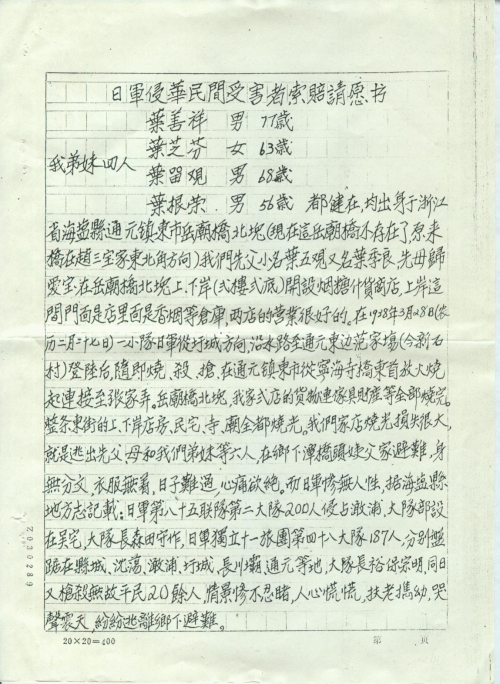 日軍侵華民間受害者索賠請愿书
葉善祥 男 77歲
葉芝芬 女 63歲
我弟妹四人
葉留觀 男 68歲
葉根荣 男 56歲 都健在，均出身于浙江
省海盐縣通元镇東市岳廟橋北堍(現在這岳廟橋不存在了原来
橋在趙三宝家東北角方向)我們先父小名葉五观又名葉季良，先母歸
愛宝，在岳廟橋北堍上、下岸(弍樓弍底)開設烟糖什貨商店，上岸這
間門面是店里面是香烟等倉庫，两店的营業很好的。在1938年3月28日(农
历二月二十七日)一小隊日軍從圩城方向，沿水路至通元東边范家塲(今新石
村)登陸台，隨即燒、殺、搶，在通元镇東市從寧海寺橋東首放火燒
起連接至张家弄。岳廟橋北堍，我家弍店的貨物連家具財產等全部燒完。
整条東街的上、下岸店房、民宅、寺、廟全都燒光。我們家店燒光損失很大，
就是逃出先父母和我們弟妹等六人，在鄉下潭橋頭娃父家避難，身
無分文，衣服無着，日子難過，心痛欲绝。而日軍惨無人性，据海盐縣
地方志記載：日軍第八十五联隊第二大隊200人侵占澉浦，大隊部設
在吴宅，大隊長森田守作，日軍獨立十一旅團第四十八大隊187人，分别盤
踞在縣城、沈蕩、澉浦、圩城、長川壩、通元等地，大隊長裕保宗明，同日
又槍殺無故平民20餘人，情景惨不忍睹，人心慌慌，扶老携幼，哭
聲震天，紛紛逃離鄉下避難。
20×20=400
第 页
Z020289